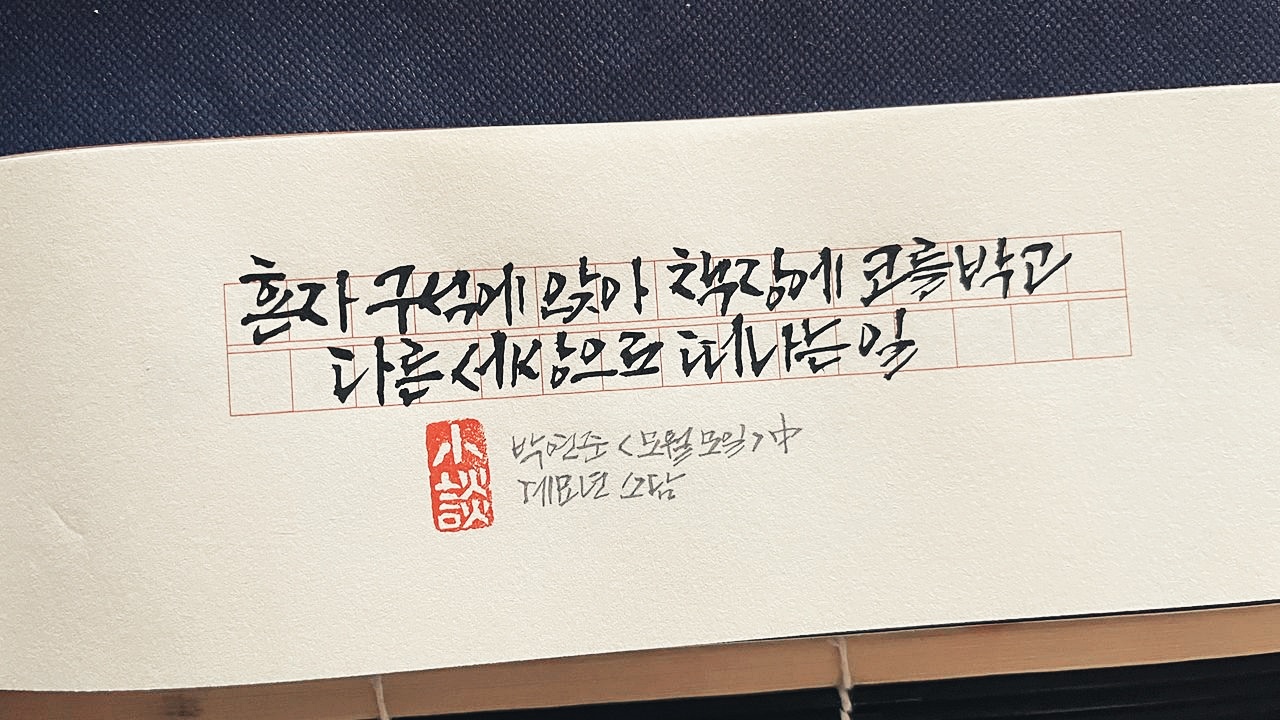 혼자 구석에 앉아 책장에 코를 박고
다른 세상으로 떠나는 일
小談
박연준 <모월모일> 中
계묘년 소담